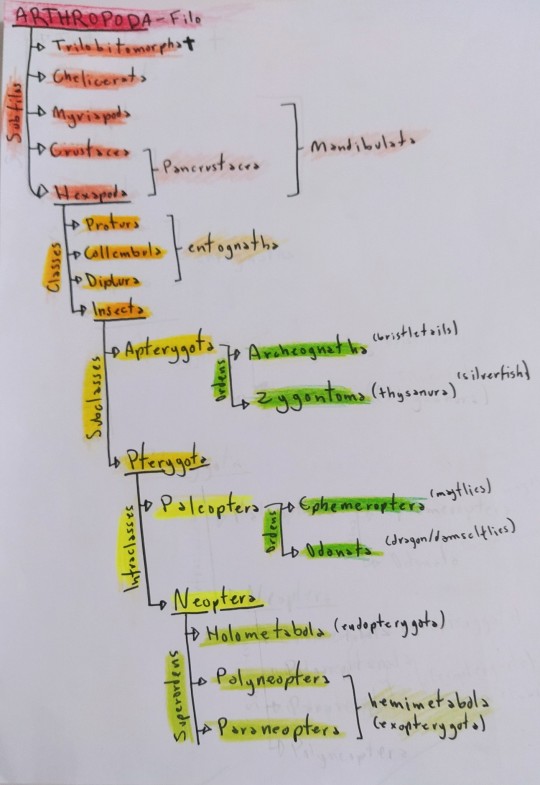 ARTHROPODA-Filo
Trilobitomorpha†
Chelicerata
Myriapoda
Crustacea
Hexapoda
Subfilos
Pancrustacea
Mandibulata
Protura
Collembula
Diplura
Insecta
Classes
entognatha
Apterygota
Archeognatha (bristletails)
Zygontoma (thysanura) (silverfish)
Ordens
Subclasses
Pterygota
Paleoptera
Ephemeroptera (mayflies)
Odonata (dragon/damselflies)
Ordens
Infraclasses
Neoptera
Holometabola (endopterygota)
Polyneoptera
Paraneoptera
Superordens
hemimetabola
(exopterygota)